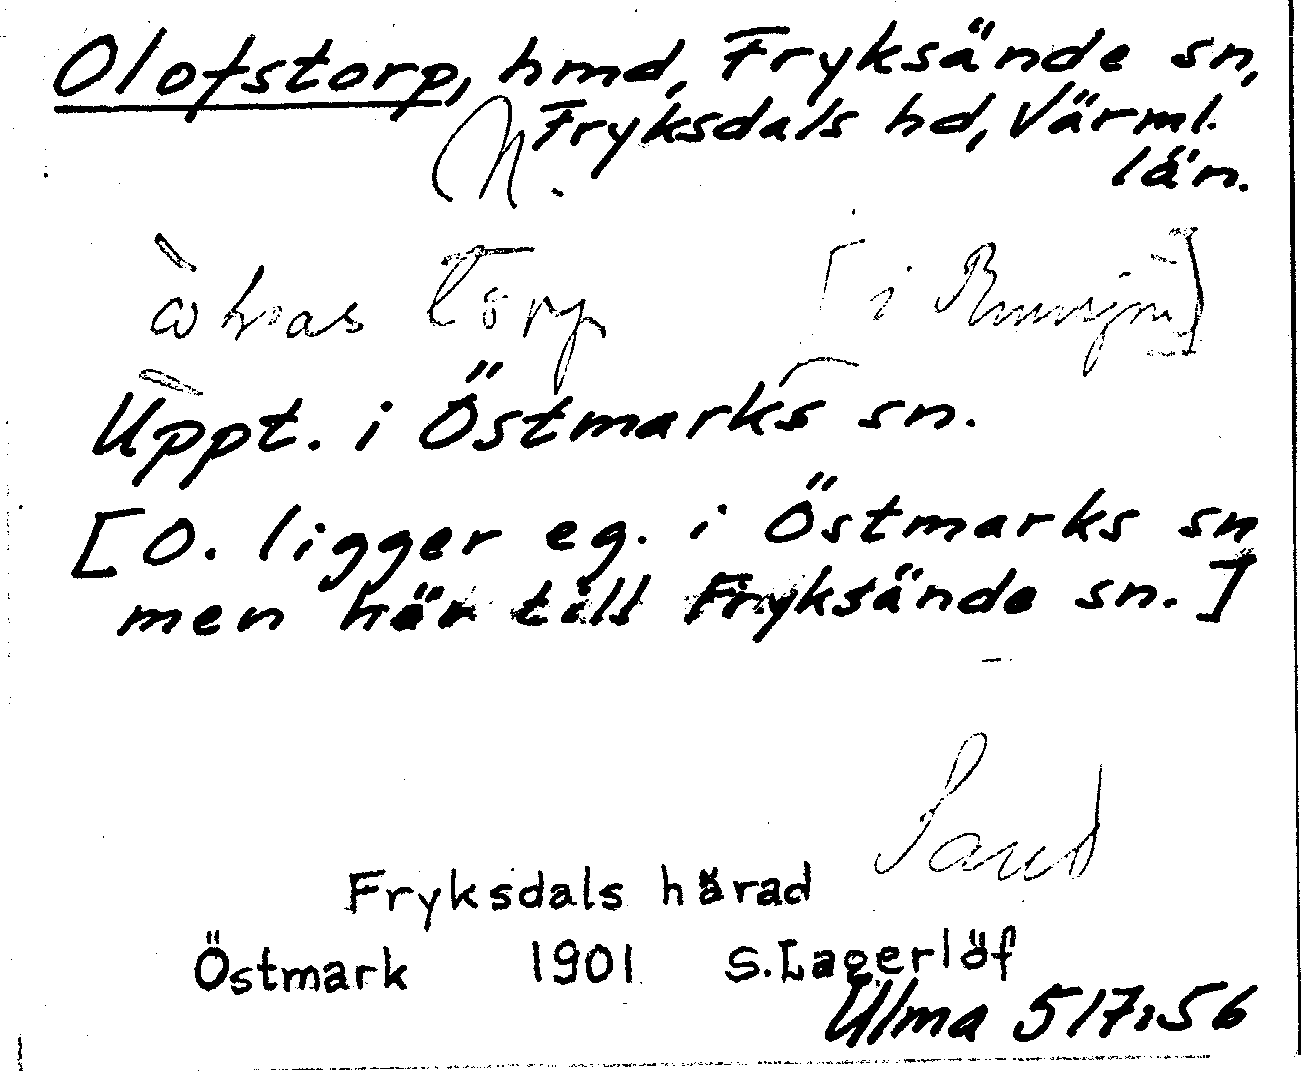 Olofstorp, hmd, Fryksände sn,
Fryksdals hd, Värml.
län.
N.
Uppt. i Östmarks sn.
[O. ligger eg. i Östmarks sn
men hör till Fryksände sn.]
Fryksdals härad
Östmark 1901 S. Lagerlöf
Ulma 517:56